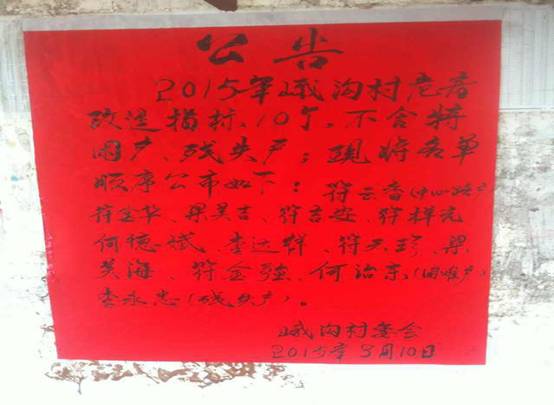 公告
2015年峨沟村危房
改造指标10个,不含特
困户、残失户;现将名单
顺序公布如下:符云香
符金华、梁昊吉、符吉安、符祥元
何德斌、李达群、符天珍、梁
英海、符金强、何治东(困难户)
李永忠(残失户)。
峨沟村委会
2015年3月10日